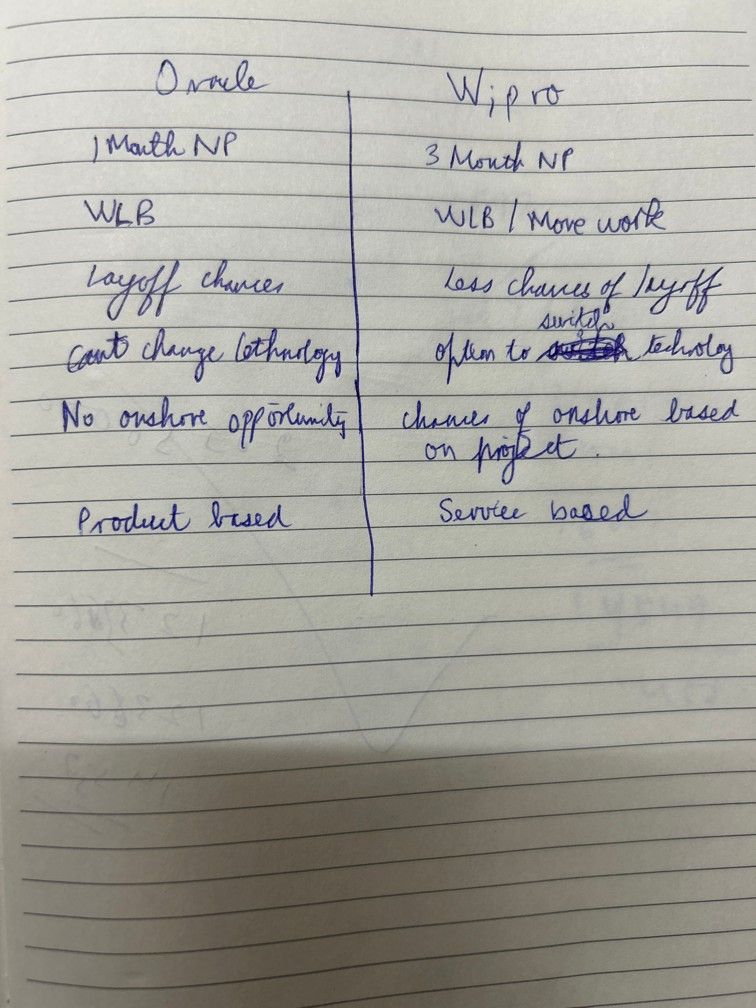 Oracle Wipro
1 Month NP 3 Month NP
WLB WLB / More work
Layoff chances Less chances of layoff
switch
Cant change tethnology option to technolog
No onshore opportunity chances of onshore based
on project.
Product based Service based